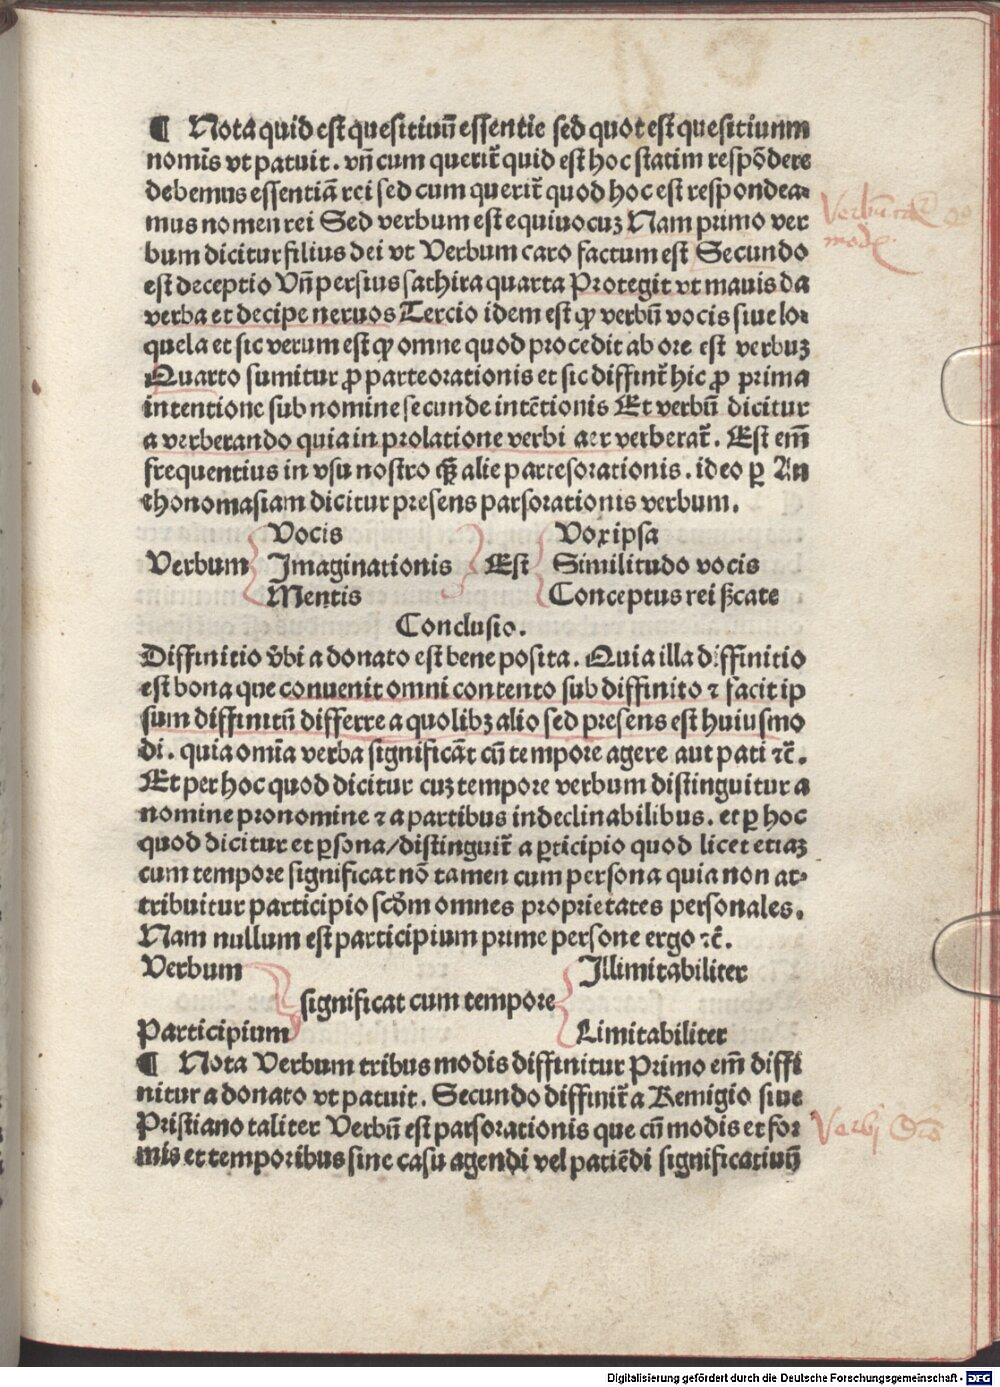 ¶ Nota quid est quesitiuū essentie sed quot est quesitiuum
nomīs vt patuit. vñ cum querit̃ quid est hoc statim respōdere
debemus essentiā rei sed cum querit̃ quod hoc est respondea-
mus nomen rei Sed verbum est equiuocuʒ Nam primo ver
bum dicitur filius dei vt Verbum caro factum est Secundo
est deceptio Vñ persius sathira quarta Protegit vt mauis da
verba et decipe neruos Tercio idem est ꝙ verbū vocis siue lo-
quela et sic verum est ꝙ omne quod procedit ab ore est verbuʒ
Quarto sumitur ꝓ parteorationis et sic diffinit̃ hic ꝓ prima
intentione sub nomine secunde intētionis Et verbū dicitur
a verberando quia in prolatione verbi aer verberat̃. Est em̄
frequentius in vsu nostro qȝ alie partesorationis. ideo ꝑ An
thonomasiam dicitur presens parsorationis verbum.
Vocis Vox ipsa
Verbum Imaginationis Est Similitudo vocis
Mentis Conceptus rei ſſcate
Conclusio.
Diffinitio v̄bi a donato est bene posita. Quia illa diffinitio
est bona que conuenit omni contento sub diffinito ⁊ facit ip
sum diffinitū differre a quolibʒ alio sed presens est huiusmo
di. quia omīa verba significāt cū tempore agere aut pati ⁊c̄.
Et per hoc quod dicitur cuʒ tempore verbum distinguitur a
nomine pronomine ⁊ a partibus indeclinabilibus. et ꝑ hoc
quod dicitur et ꝑsona/distinguit̃ a ꝑticipio quod licet etiaʒ
cum tempore significat nō tamen cum persona quia non at-
tribuitur participio scd̄m omnes proprietates personales.
Nam nullum est participium prime persone ergo ⁊c̄.
Verbum Illimitabiliter
significat cum tempore
Participium Limitabiliter
¶ Nota Verbum tribus modis diffinitur Primo em̄ diffi
nitur a donato vt patuit. Secundo diffinit̃ a Remigio siue
Pristiano taliter Verbū est parsorationis que cū modis et for
mis et temporibus sine casu agendi vel patiēdi significatiuū
Digitalisierung gefördert durch die Deutsche Forschungsgemeinschaft - DFG